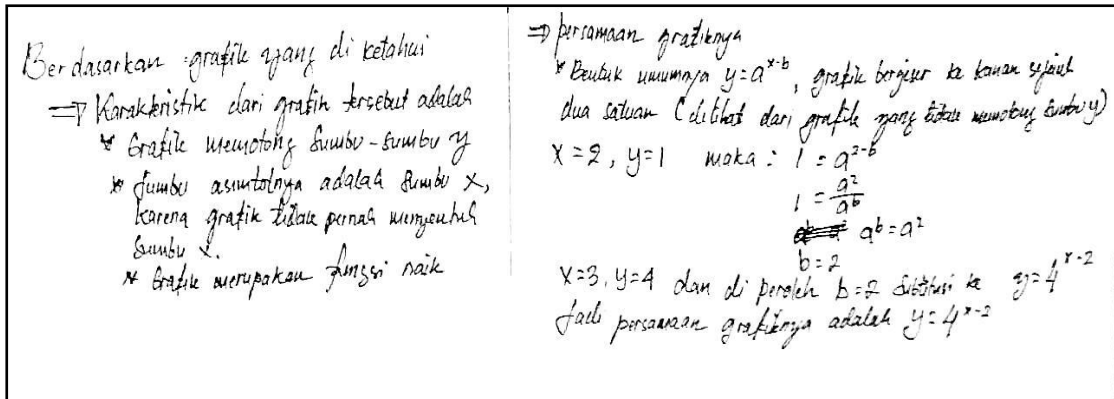 Berdasarkan grafik yang di ketahui
⇒ Karakteristik dari grafik tersebut adalah
* Grafik memotong sumbu-sumbu y
* Sumbu asimtotnya adalah sumbu x,
karena grafik tidak pernah menyentuh
sumbu x.
* Grafik merupakan fungsi naik
⇒ persamaan grafiknya
* Bentuk umumnya y = a^{x-b}, grafik bergeser ke kanan sejauh
dua satuan (dilihat dari grafik yang tidak memotong sumbu y)
x = 2, y = 1 maka : 1 = a^{2-b}
1 = a²/a^b
a^b = a²
b = 2
x = 3, y = 4 dan di peroleh b = 2 substitusi ke y = 4^{x-2}
Jadi persamaan grafiknya adalah y = 4^{x-2}